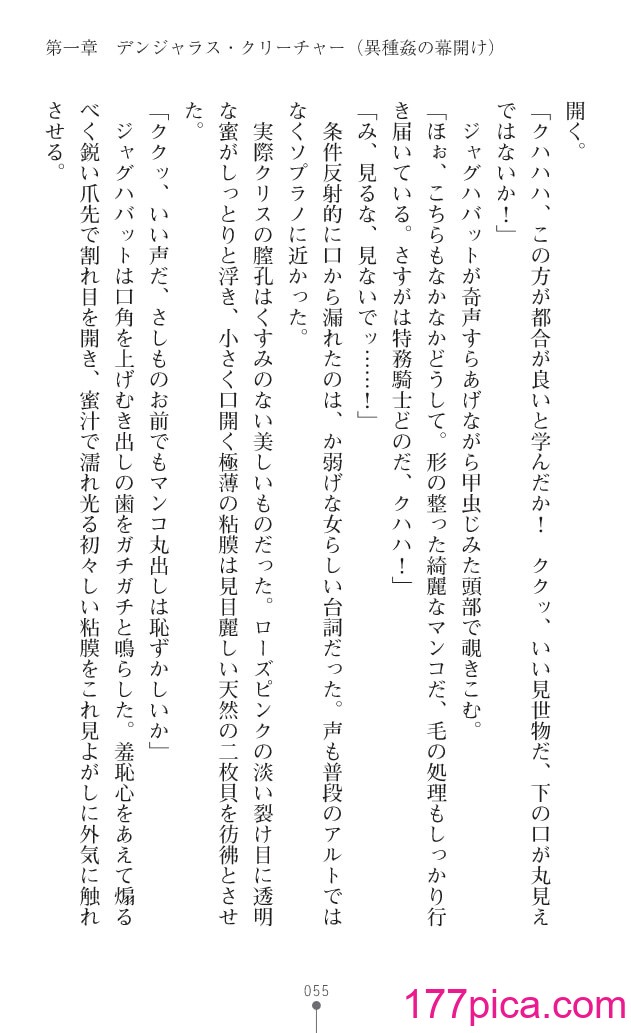 第一章　デンジャラス・クリーチャー（異種姦の幕開け）
開く。
「クハハハ、この方が都合が良いと学んだか！　ククッ、いい見世物だ、下の口が丸見え
ではないか！」
ジャグハバットが奇声すらあげながら甲虫じみた頭部で覗きこむ。
「ほぉ、こちらもなかなかどうして。形の整った綺麗なマンコだ、毛の処理もしっかり行
き届いている。さすがは特務騎士どのだ、クハハ！」
「み、見るな、見ないでッ……！」
条件反射的に口から漏れたのは、か弱げな女らしい台詞だった。声も普段のアルトでは
なくソプラノに近かった。
実際クリスの膣孔はくすみのない美しいものだった。ローズピンクの淡い裂け目に透明
な蜜がしっとりと浮き、小さく口開く極薄の粘膜は見目麗しい天然の二枚貝を彷彿とさせ
た。
「ククッ、いい声だ、さしものお前でもマンコ丸出しは恥ずかしいか」
ジャグハバットは口角を上げむき出しの歯をガチガチと鳴らした。羞恥心をあえて煽る
べく鋭い爪先で割れ目を開き、蜜汁で濡れ光る初々しい粘膜をこれ見よがしに外気に触れ
させる。
055
177pica.com